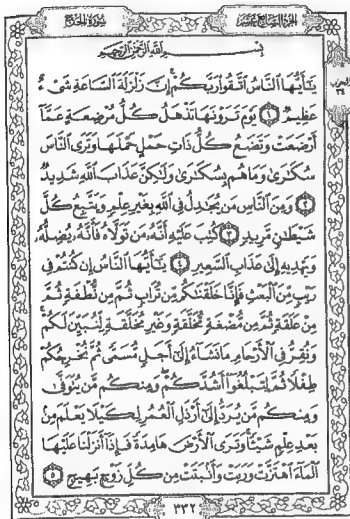 الجزء السابع عشر
سورة الحج
بسم الله الرحمن الرحيم
يَٰٓأَيُّهَا ٱلنَّاسُ ٱتَّقُوا۟ رَبَّكُمْ إِنَّ زَلْزَلَةَ ٱلسَّاعَةِ شَىْءٌ
عَظِيمٌ ١ يَوْمَ تَرَوْنَهَا تَذْهَلُ كُلُّ مُرْضِعَةٍ عَمَّآ
أَرْضَعَتْ وَتَضَعُ كُلُّ ذَاتِ حَمْلٍ حَمْلَهَا وَتَرَى ٱلنَّاسَ
سُكَٰرَىٰ وَمَا هُم بِسُكَٰرَىٰ وَلَٰكِنَّ عَذَابَ ٱللَّهِ شَدِيدٌ
٢ وَمِنَ ٱلنَّاسِ مَن يُجَٰدِلُ فِى ٱللَّهِ بِغَيْرِ عِلْمٍ وَيَتَّبِعُ كُلَّ
شَيْطَٰنٍ مَّرِيدٍ ٣ كُتِبَ عَلَيْهِ أَنَّهُۥ مَن تَوَلَّاهُ فَأَنَّهُۥ يُضِلُّهُۥ
وَيَهْدِيهِ إِلَىٰ عَذَابِ ٱلسَّعِيرِ ٤ يَٰٓأَيُّهَا ٱلنَّاسُ إِن كُنتُمْ فِى
رَيْبٍ مِّنَ ٱلْبَعْثِ فَإِنَّا خَلَقْنَٰكُم مِّن تُرَابٍ ثُمَّ مِن نُّطْفَةٍ ثُمَّ
مِنْ عَلَقَةٍ ثُمَّ مِن مُّضْغَةٍ مُّخَلَّقَةٍ وَغَيْرِ مُخَلَّقَةٍ لِّنُبَيِّنَ لَكُمْ
وَنُقِرُّ فِى ٱلْأَرْحَامِ مَا نَشَآءُ إِلَىٰٓ أَجَلٍ مُّسَمًّى ثُمَّ نُخْرِجُكُمْ
طِفْلًا ثُمَّ لِتَبْلُغُوٓا۟ أَشُدَّكُمْ وَمِنكُم مَّن يُتَوَفَّىٰ
وَمِنكُم مَّن يُرَدُّ إِلَىٰٓ أَرْذَلِ ٱلْعُمُرِ لِكَيْلَا يَعْلَمَ مِنۢ
بَعْدِ عِلْمٍ شَيْـًٔا وَتَرَى ٱلْأَرْضَ هَامِدَةً فَإِذَآ أَنزَلْنَا عَلَيْهَا
ٱلْمَآءَ ٱهْتَزَّتْ وَرَبَتْ وَأَنۢبَتَتْ مِن كُلِّ زَوْجٍۭ بَهِيجٍ ٥
٣٣٢